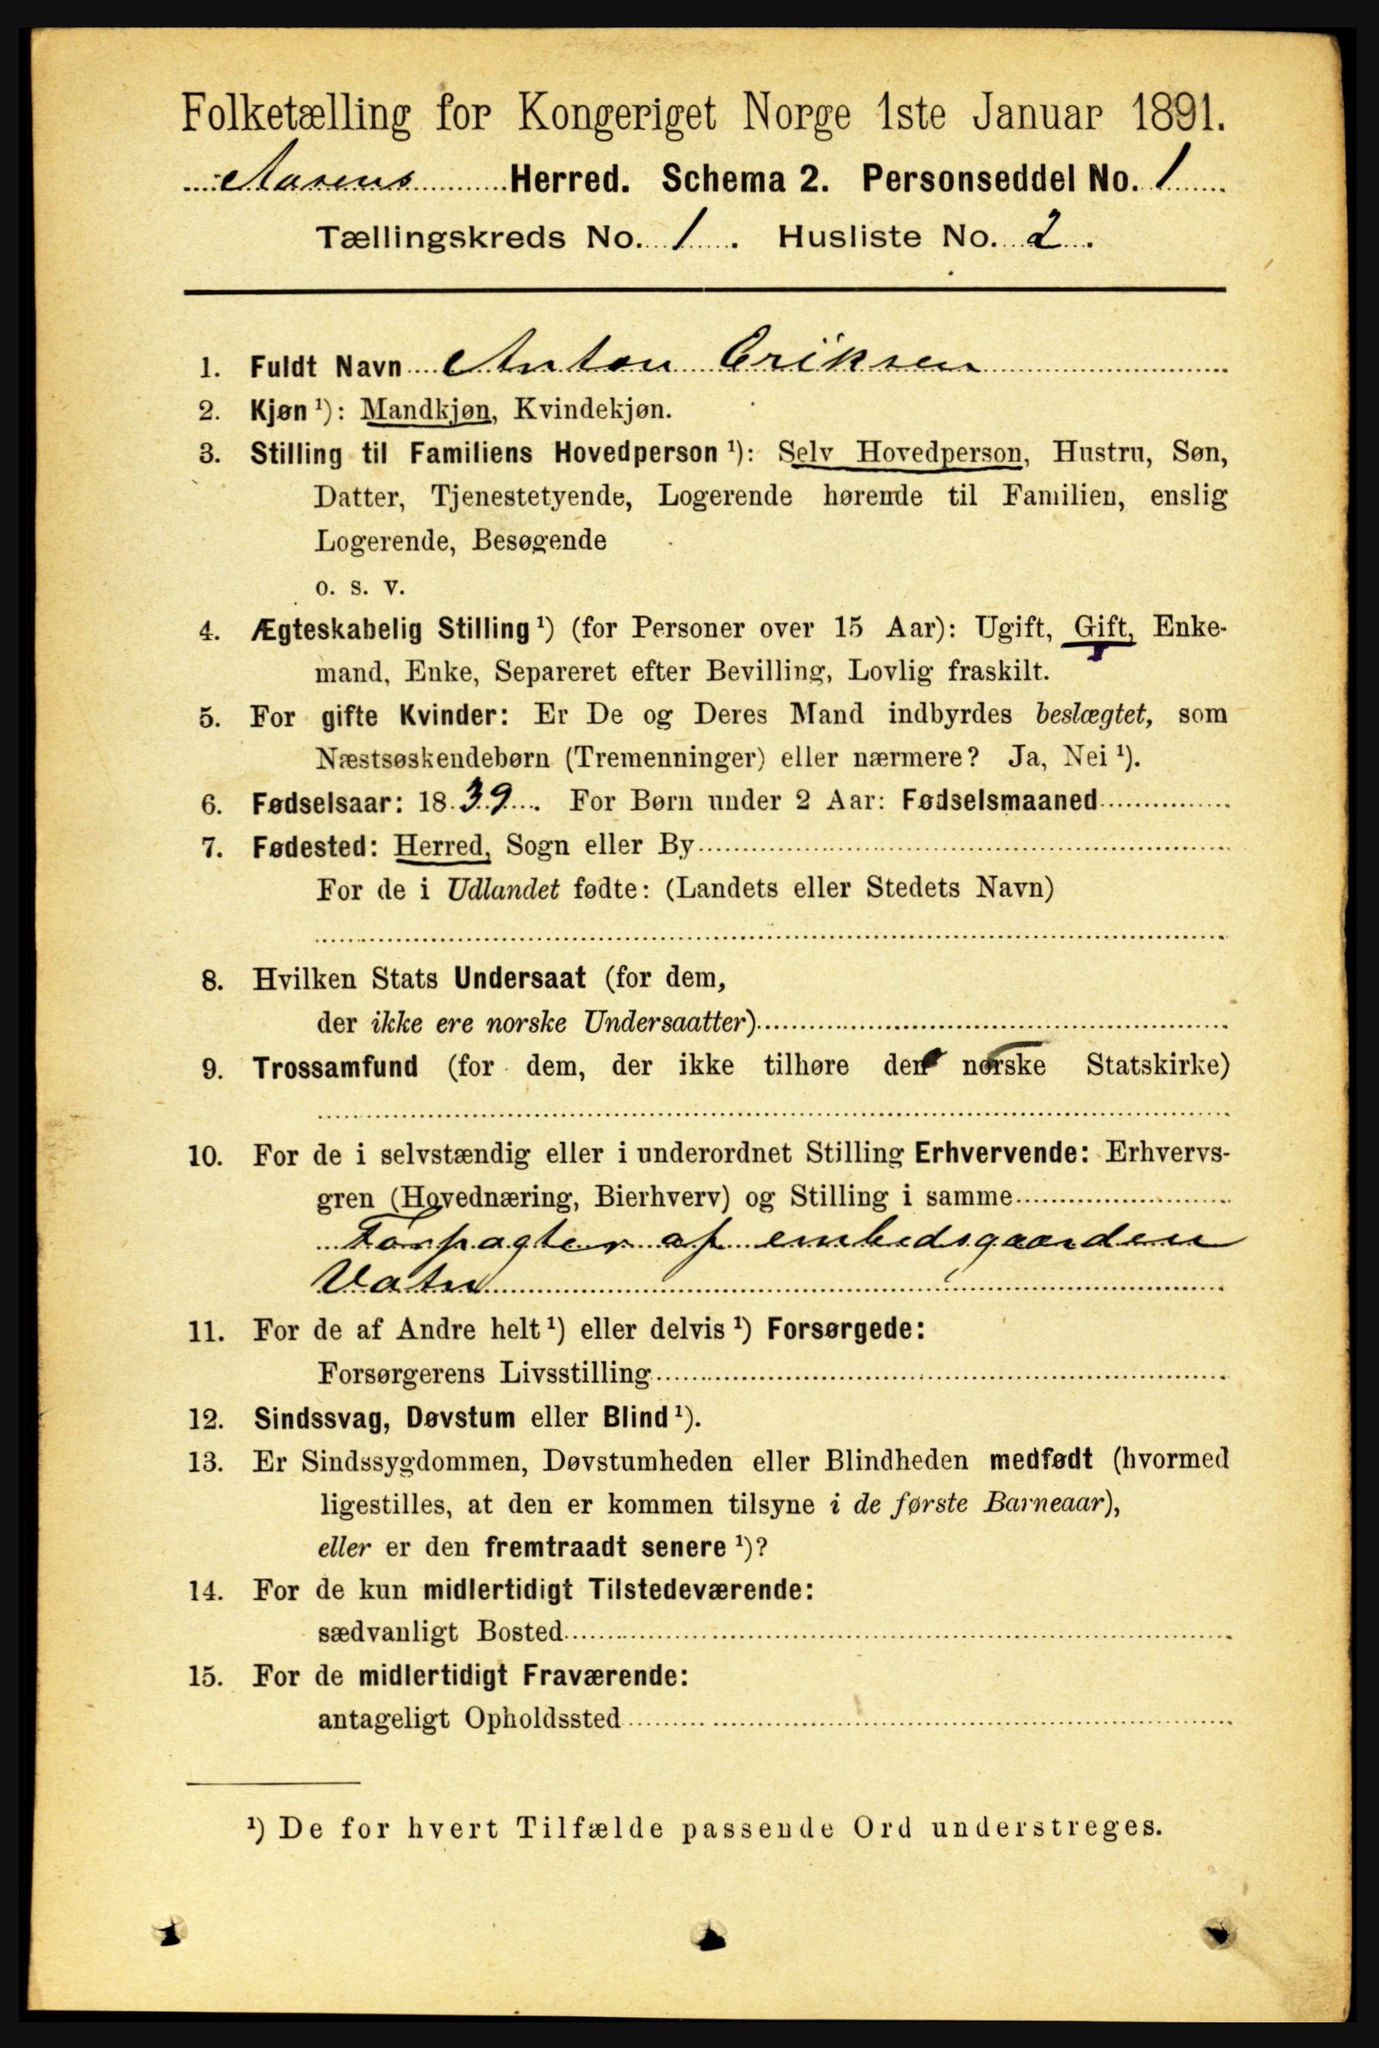 Folketælling for Kongeriget Norge 1ste Januar 1891.
Aasens Herred. Schema 2. Personseddel No. 1
Tællingskreds No. 1. Husliste No. 2.
1. Fuldt Navn Anton Eriksen
2. Kjøn ¹): Mandkjøn, Kvindekjøn.
3. Stilling til Familiens Hovedperson ¹): Selv Hovedperson, Hustru, Søn,
Datter, Tjenestetyende, Logerende hørende til Familien, enslig
Logerende, Besøgende
o. s. v.
4. Ægteskabelig Stilling ¹) (for Personer over 15 Aar): Ugift, Gift, Enke-
mand, Enke, Separeret efter Bevilling, Lovlig fraskilt.
5. For gifte Kvinder: Er De og Deres Mand indbyrdes beslægtet, som
Næstsøskendebørn (Tremenninger) eller nærmere? Ja, Nei ¹).
6. Fødselsaar: 1839. For Børn under 2 Aar: Fødselsmaaned
7. Fødested: Herred, Sogn eller By
For de i Udlandet fødte: (Landets eller Stedets Navn)
8. Hvilken Stats Undersaat (for dem,
der ikke ere norske Undersaatter)
9. Trossamfund (for dem, der ikke tilhøre den norske Statskirke)
10. For de i selvstændig eller i underordnet Stilling Erhvervende: Erhvervs-
gren (Hovednæring, Bierhverv) og Stilling i samme
Forpagter af embedsgaarden
Vatn
11. For de af Andre helt ¹) eller delvis ¹) Forsørgede:
Forsørgerens Livsstilling
12. Sindssvag, Døvstum eller Blind ¹).
13. Er Sindssygdommen, Døvstumheden eller Blindheden medfødt (hvormed
ligestilles, at den er kommen tilsyne i de første Barneaar),
eller er den fremtraadt senere ¹)?
14. For de kun midlertidigt Tilstedeværende:
sædvanligt Bosted
15. For de midlertidigt Fraværende:
antageligt Opholdssted
¹) De for hvert Tilfælde passende Ord understreges.